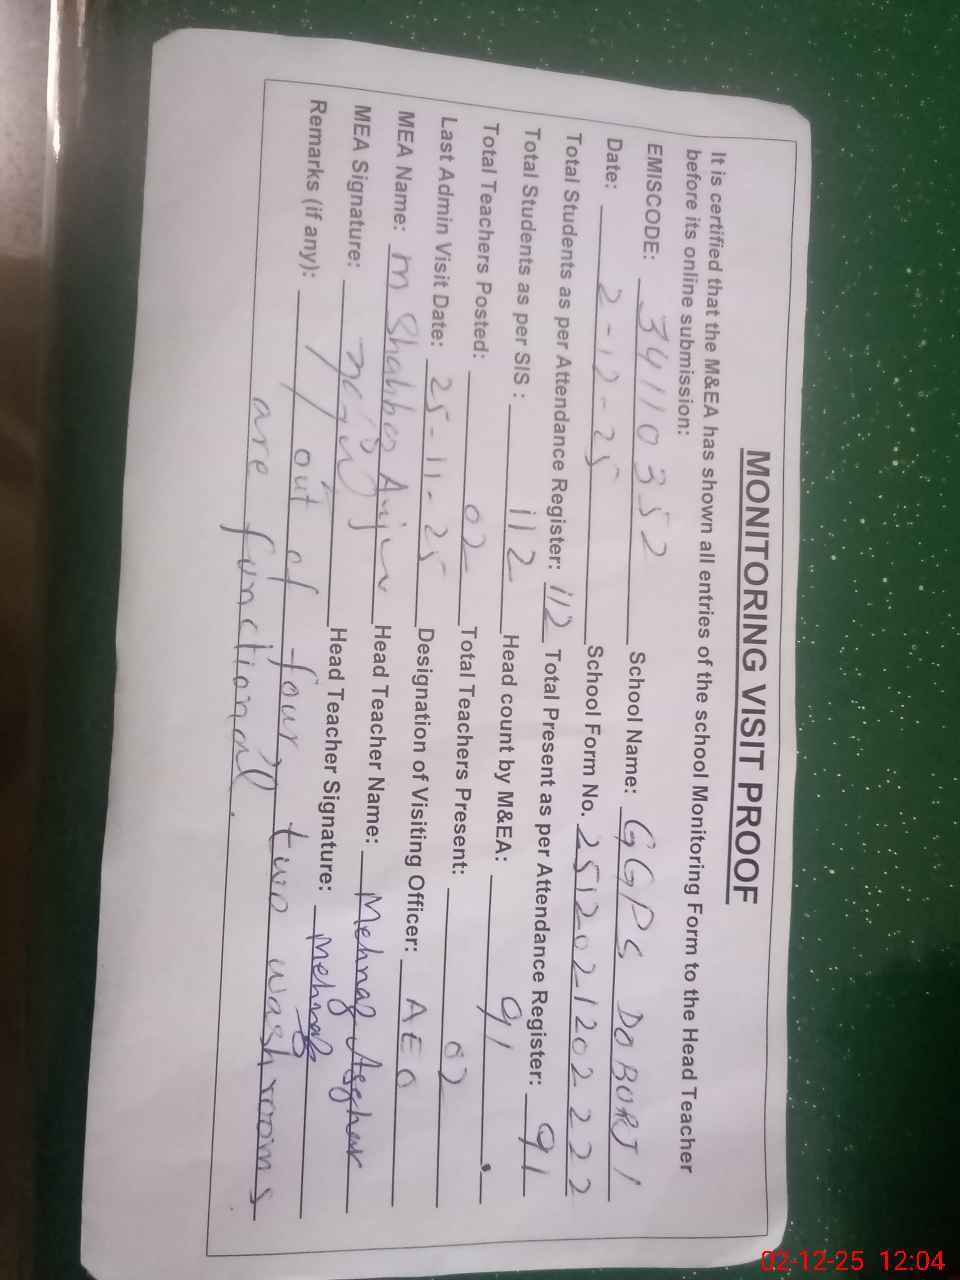 MONITORING VISIT PROOF
It is certified that the M&EA has shown all entries of the school Monitoring Form to the Head Teacher
before its online submission:
EMISCODE: 34110352 School Name: GGPS DOBURJI
Date: 2-12-25 School Form No. 2512021202222
Total Students as per Attendance Register: 112 Total Present as per Attendance Register: 91
Total Students as per SIS : 112 Head count by M&EA: 91
Total Teachers Posted: 02 Total Teachers Present: 02
Last Admin Visit Date: 25-11-25 Designation of Visiting Officer: AEO
MEA Name: M Shahbaz Anjum Head Teacher Name: Mehnaz Asghar
MEA Signature: Head Teacher Signature: Mehnaz
Remarks (if any): out of four, two washrooms
are functional.
02-12-25 12:04